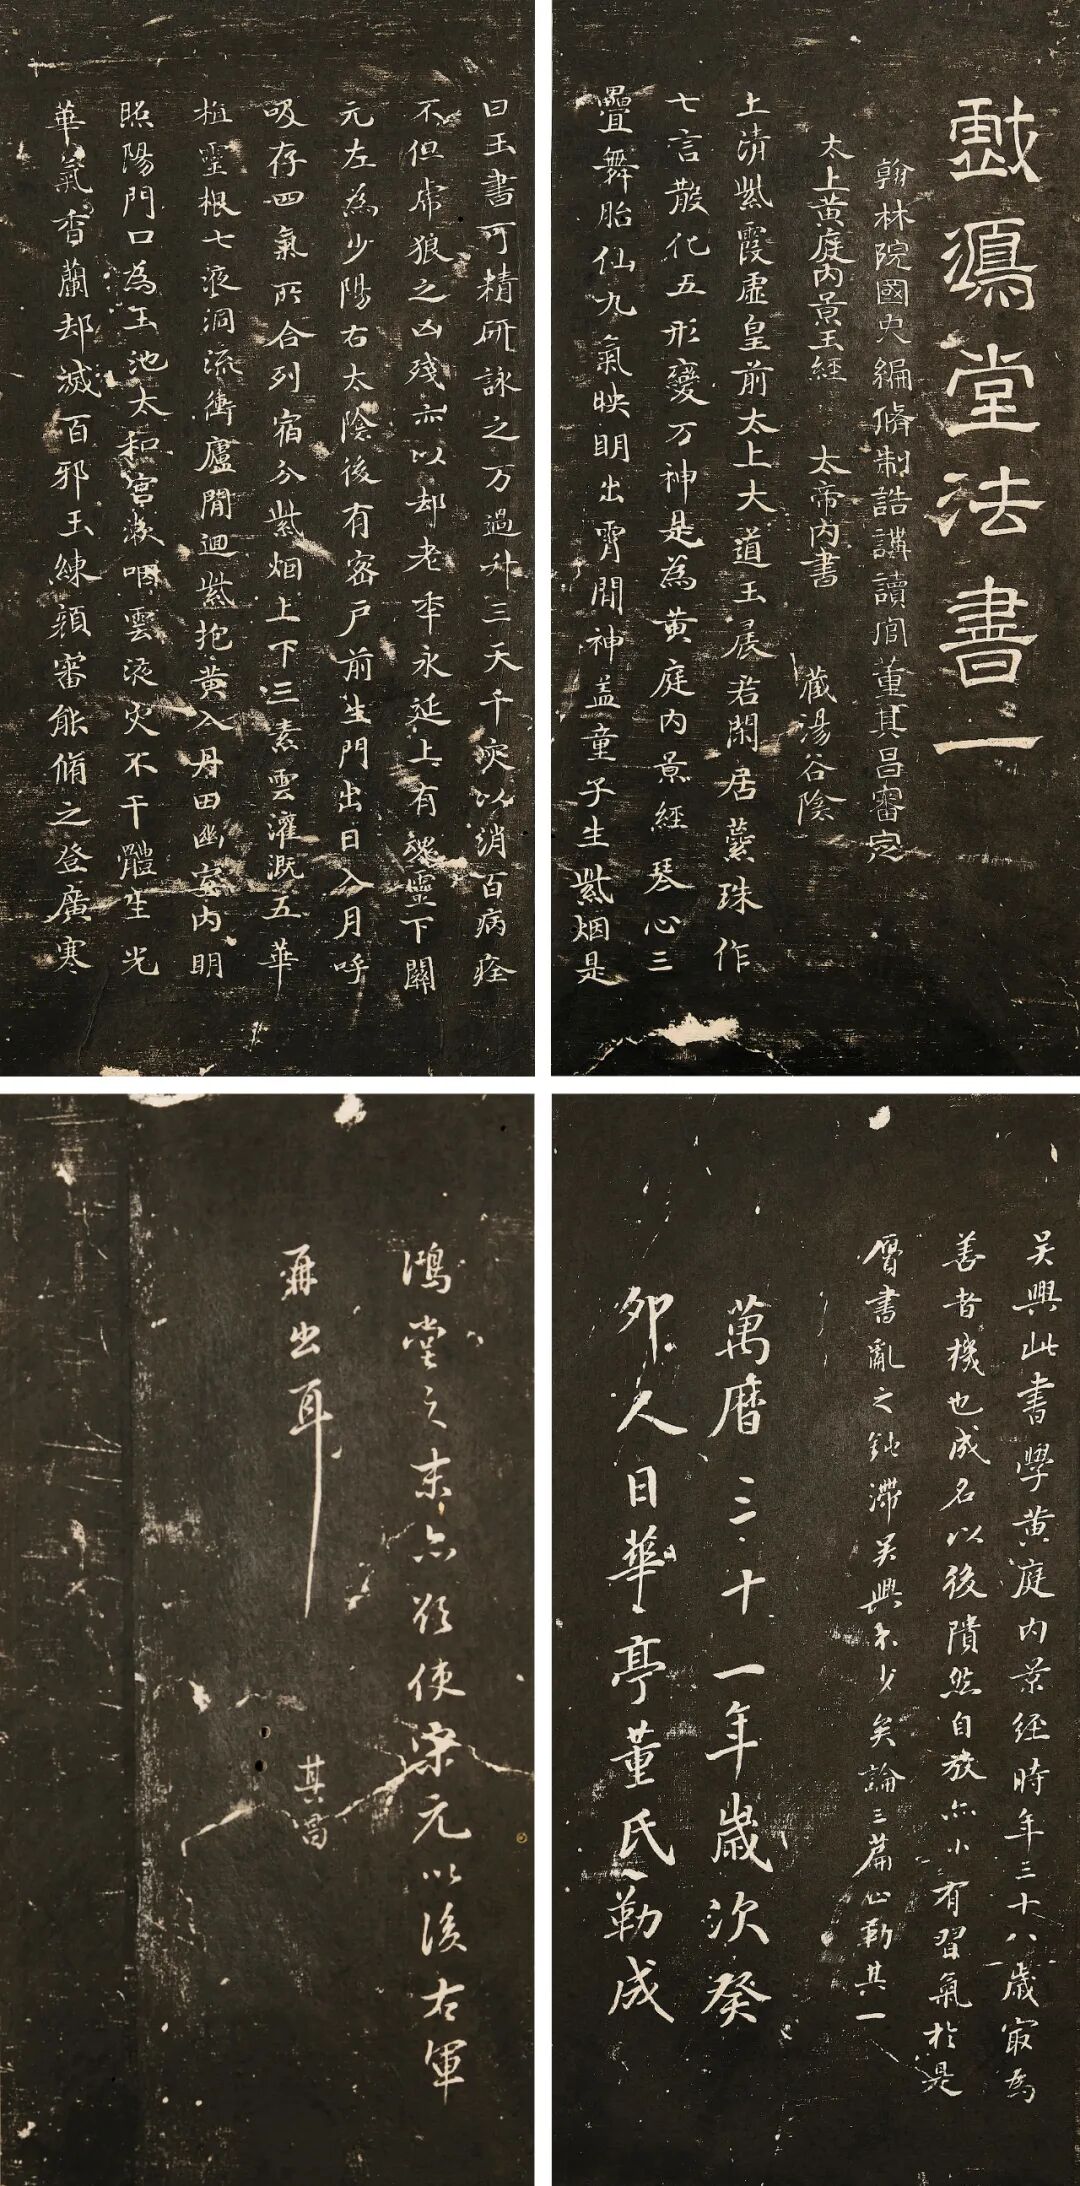 戲鴻堂法書一
翰林院國史編脩制誥講讀官董其昌審定
太上黃庭內景玉經 太帝內書 藏湯谷陰
上清紫霞虛皇前太上大道玉晨君閑居蘂珠作
七言散化五形變万神是為黃庭內景經琴心三
疊舞胎仙九氣映明出霄間神盖童子生紫烟是
曰玉書可精研詠之万過升三天千灾以消百病痊
不但虎狼之凶殘亦以却老年永延上有魂靈下關
元左為少陽右太陰後有密戶前生門出日入月呼
吸存四氣所合列宿分紫烟上下三素雲灌溉五華
植靈根七液洞流衝廬閒迴紫抱黃入丹田幽室內明
照陽門口為玉池太和宮漱咽靈液灾不干體生光
華氣香蘭却滅百邪玉練顏審能脩之登廣寒
吳興此書學黃庭內景經時年三十八歲㝡為
善者機也成名以後隤然自放亦小有習氣於是
贗書亂之鈍滯吳興不少矣論三篇止勒其一
萬曆三十一年歲次癸
卯人日華亭董氏勒成
鴻堂之末亦欲使宋元以後右軍
再出耳
其昌